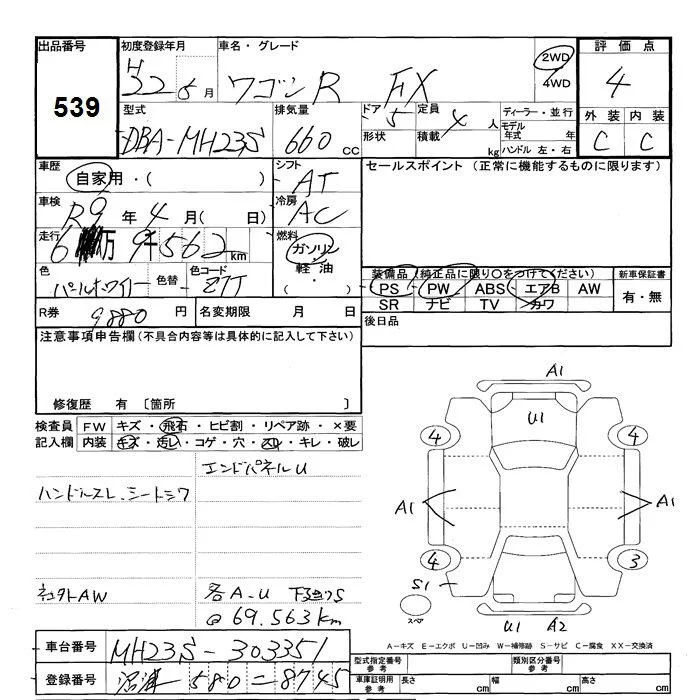 出品番号 初度登録年月 車名・グレード 評価点
539 H22 5月 ワゴンR FX 2WD 4WD 4
型式 排気量 ドア 定員 ディーラー・並行 外装 内装
DBA-MH23S 660cc 5 4人 モデル年式 年 C C
形状 積載 kg ハンドル 左・右
車歴 シフト セールスポイント (正常に機能するものに限ります)
自家用・( ) AT
車検 冷房
R9年4月( 日) AC
走行 燃料
6万9千562km ガソリン
軽油
( ・ )
色 色替 色コード 装備品(純正品に限り○をつけてください) 新車保証書
パールホワイト Z7T PS PW ABS エアB AW 有・無
SR ナビ TV カワ
R券 9880円 名変期限 月 日 後日品
注意事項申告欄(不具合内容等は具体的に記入して下さい)
修復歴 有 [箇所 ]
検査員 FW キズ・飛石・ヒビ割・リペア跡・×要
記入欄 内装 キズ・汚レ・コゲ・穴・スレ・キレ・破レ
エンドパネルU
ハンドルスレ、シートシワ
社外AW 各A-U 下廻りS
@69.563km
A1
U1
4 4
A1 A1
4 3
S1
スペア
U1 A2
A-キズ E-エクボ U-凹み W-補修跡 S-サビ C-腐食 XX-交換済
車台番号 MH23S-303351
登録番号 沼津 580 = 8745
型式指定番号 参考 類別区分番号 参考
車庫証明用 参考 長さ cm 幅 cm 高さ cm